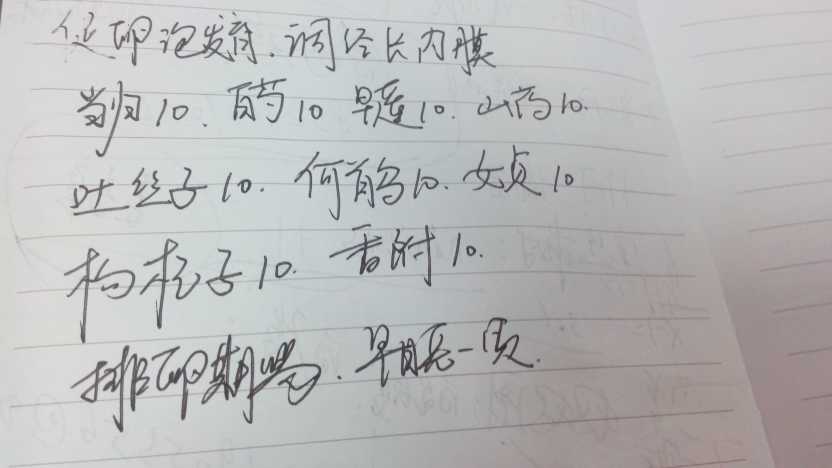 促卵泡发育.调经长内膜
当归10.白芍10 旱莲10.山药10.
吐丝子10.何首乌10.女贞10
枸杞子10.香附10.
排卵期喝.早晨一顿.